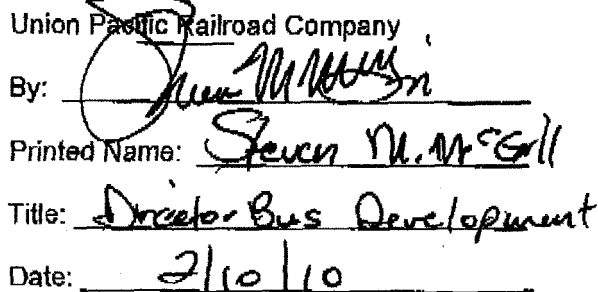 Union Pacific Railroad Company
By:
Printed Name: Steven M. McGill
Title: Director Bus Development
Date: 2/10/10